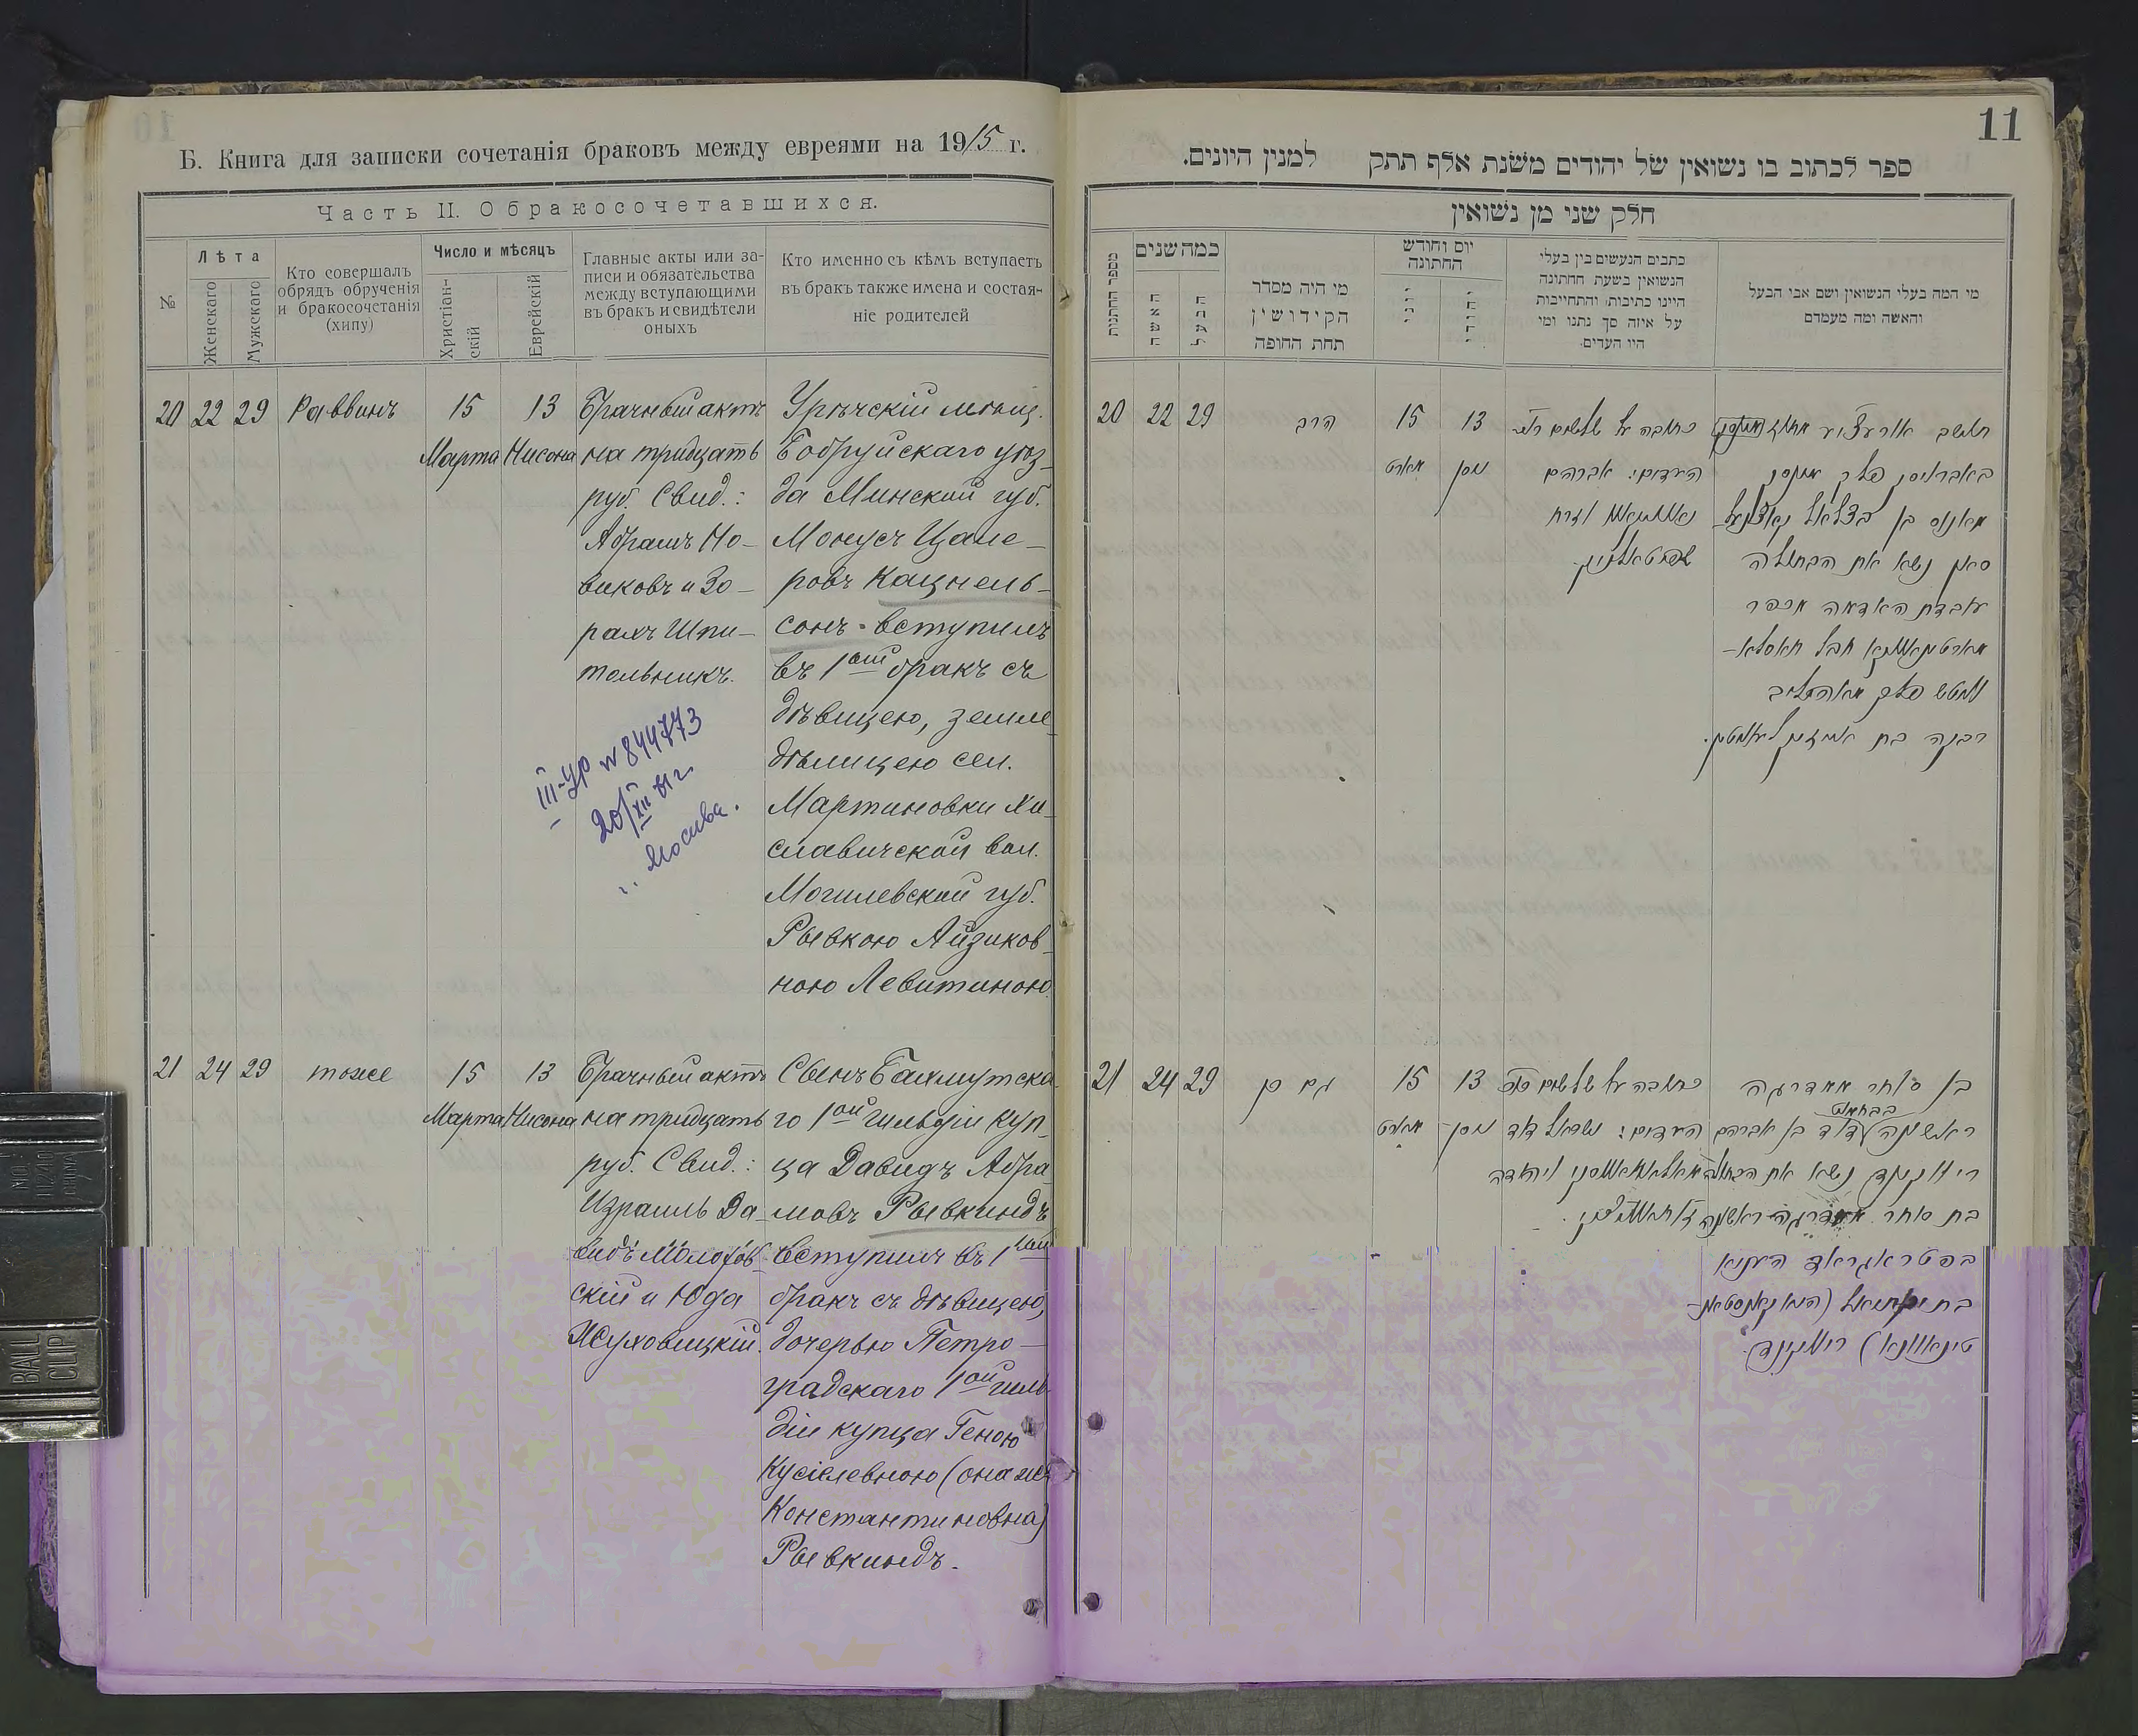 Б. Книга для записки сочетанія браковъ между евреями на 1915 г.
Часть II. О бракосочетавшихся.
№
Лѣта
Женскаго
Мужскаго
Кто совершалъ
обрядъ обрученія
и бракосочетанія
(хипу)
Число и мѣсяцъ
Христіан-
скій
Еврейскій
Главные акты или за-
писи и обязательства
между вступающими
въ бракъ и свидѣтели
оныхъ
Кто именно съ кѣмъ вступаетъ
въ бракъ также имена и состоя-
ніе родителей
20 22 29 Раввинъ 15 13
Марта Нисона
Брачный актъ
на тридцать
руб. Свид.:
Абрамъ Но-
виковъ и Зо-
рахъ Шпи-
тольникъ.
Урѣчскій мѣщ.
Бобруйскаго уѣз-
да Минской губ.
Монусъ Цале-
ровъ Кацнель-
сонъ вступилъ
въ 1ый бракъ съ
дѣвицею, земле-
дѣлицею сел.
Мартиновки Хи-
славичской вол.
Могилевской губ.
Рывкою Айзиков-
ною Левитиною
III-УР № 844773
20/XII
г. Москва.
21 24 29 тоже 15 13
Марта Нисона
Брачный актъ
на тридцать
руб. Свид.:
Израиль Да-
видъ
скій и Юда
Жуховицкій.
Сынъ Бахмутска-
го 1ой гильдіи куп-
ца Давидъ Абра-
мовъ Рывкиндъ
вступилъ въ 1ый
бракъ съ дѣвицею,
дочерью Петро-
градскаго 1ой гиль-
діи купца Геною
Кусіелевною (она же
Константиновна)
Рывкиндъ.
11
ספר לכתוב בו נשואין של יהודים משנת אלף תתק למנין היונים.
חלק שני מן נשואין
מספר החתונות
כמה שנים
האשה
הבעל
מי היה מסדר
הקידושין
תחת החופה
יום וחודש
החתונה
יוני
יהודי
כתבים הנעשים בין בעלי
הנשואין בשעת חתונה
היינו כתיבות והתחייבות
על איזה סך נתנו ומי
היו העדים:
מי המה בעלי הנשואין ושם אבי הבעל
והאשה ומה מעמדם
20 22 29 הרב 15 13
מארט ניסן
כתובה על שלשים רו"כ
העדים: אברהם
נאוויקאוו וזרח
שפיטאלניק.
באברויסק פלך מינסק
סאן נשא את הבתולה
עובדת האדמה מכפר
פלך מאהליוב
רבקה בת אייזיק לעוויטין.
21 24 29 גם כן 15 13
מארט ניסן
כתובה על שלשים רו"כ
העדים: ישראל דוד
בן סוחר ממדרגה
בבחמוט
ראשונה דוד בן אברהם
ריווקינד נשא את הבתולה
בת סוחר ממדרגה ראשונה
בפטראגראד העניא
ריווקינד.